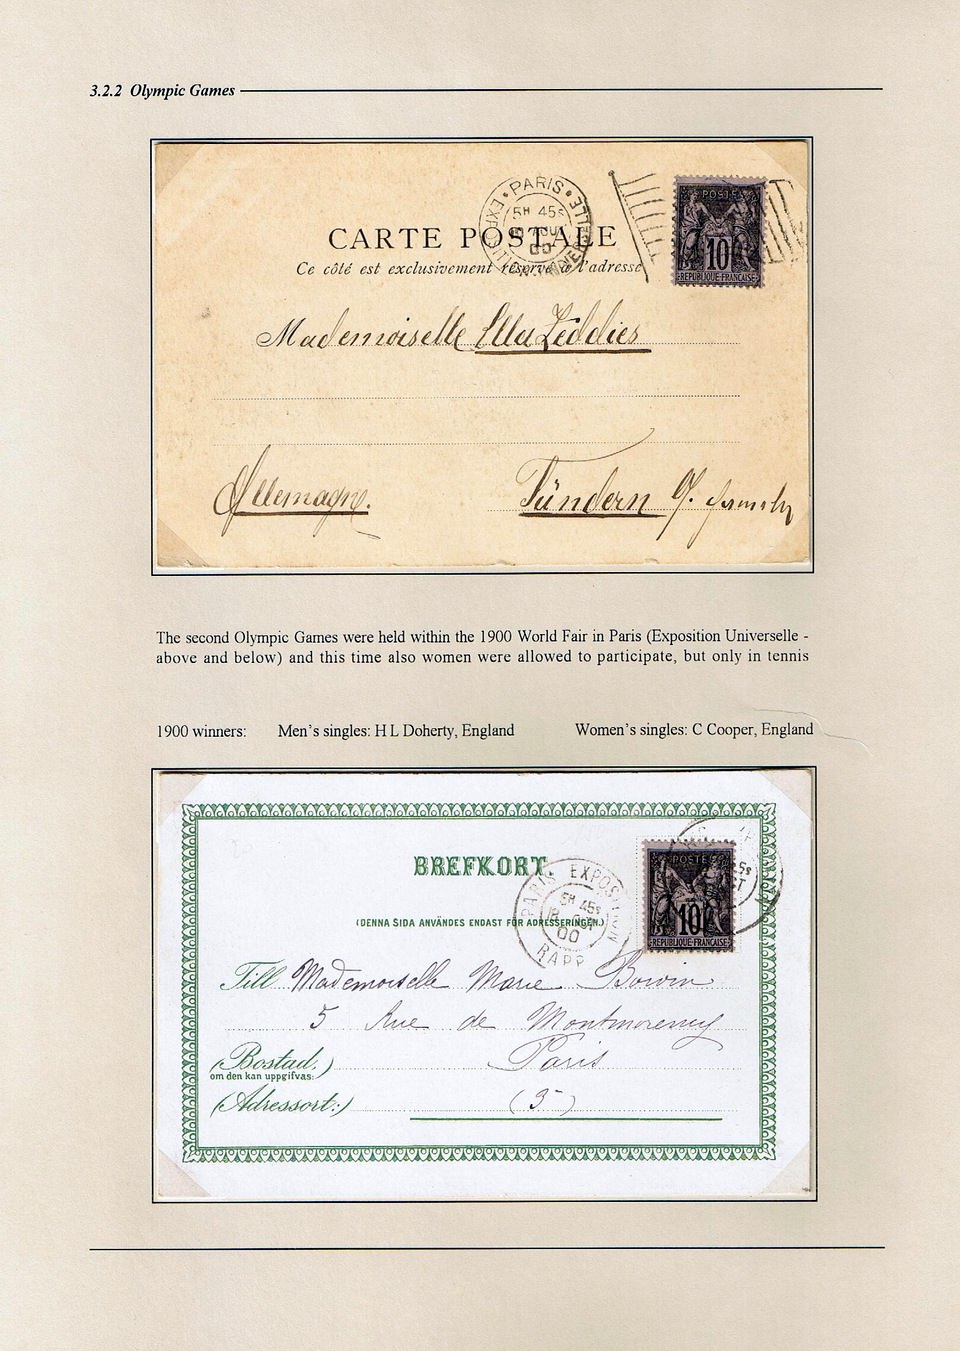 3.2.2 Olympic Games
PARIS
EXPOSITION UNIVERSELLE
5H 45S
00
POSTE
10
REPUBLIQUE FRANÇAISE
CARTE POSTALE
Ce côté est exclusivement réservé à l'adresse
Mademoiselle Ella Zeddies
Allemagne.
Tündern
The second Olympic Games were held within the 1900 World Fair in Paris (Exposition Universelle -
above and below) and this time also women were allowed to participate, but only in tennis
1900 winners: Men's singles: H L Doherty, England Women's singles: C Cooper, England
BREFKORT.
PARIS EXPOSITION
5H 45S
00
RAPP
POSTE
10
REPUBLIQUE FRANÇAISE
(DENNA SIDA ANVÄNDES ENDAST FÖR ADRESSERINGEN.)
Till Mademoiselle Marie
5 Rue de Montmorency
(Bostad,
om den kan uppgifvas:)
Paris
(Adressort:) (3)